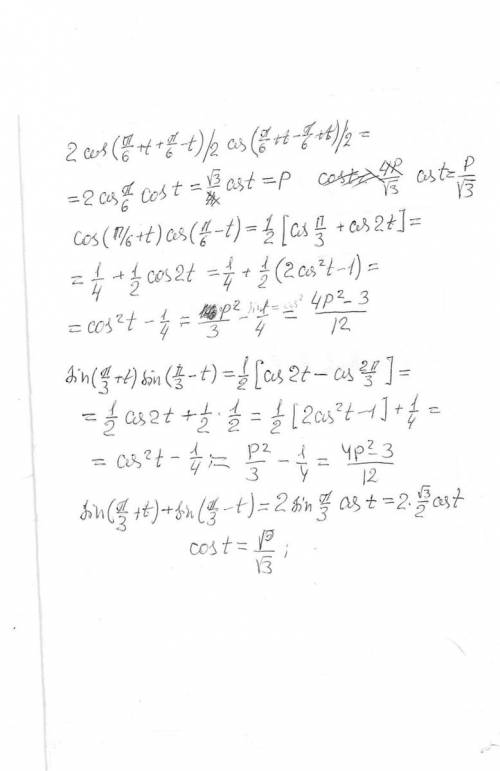 2 cos(π/6+t+π/6-t)/2 cos(π/6+t-π/6+t)/2=
=2cos π/6 cos t = √3/2̶ cos t = P cos t = P/√3
cos(π/6+t) cos(π/6-t)=1/2[cos π/3 + cos 2t]=
= 1/4 + 1/2 cos 2t = 1/4 + 1/2 (2cos²t-1)=
= cos²t - 1/4 = P²/3 - 1/4 = 4P²-3/12
sin(π/3+t) sin(π/3-t)=1/2[cos 2t - cos 2π/3]=
= 1/2 cos 2t + 1/2 · 1/2 = 1/2 [2cos²t-1]+1/4 =
= cos²t - 1/4 = P²/3 - 1/4 = 4P²-3/12
sin(π/3+t)+sin(π/3-t)=2 sin π/3 cos t = 2·√3/2 cos t
cos t = P/√3;